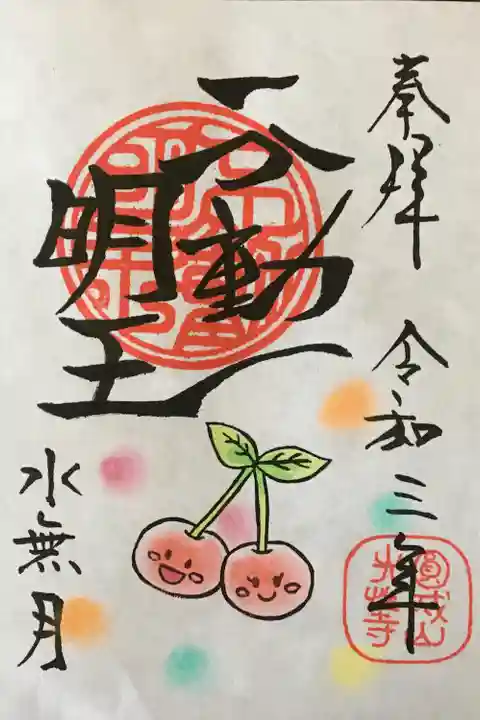 奉拝
令和三年
不動
明王
水無月